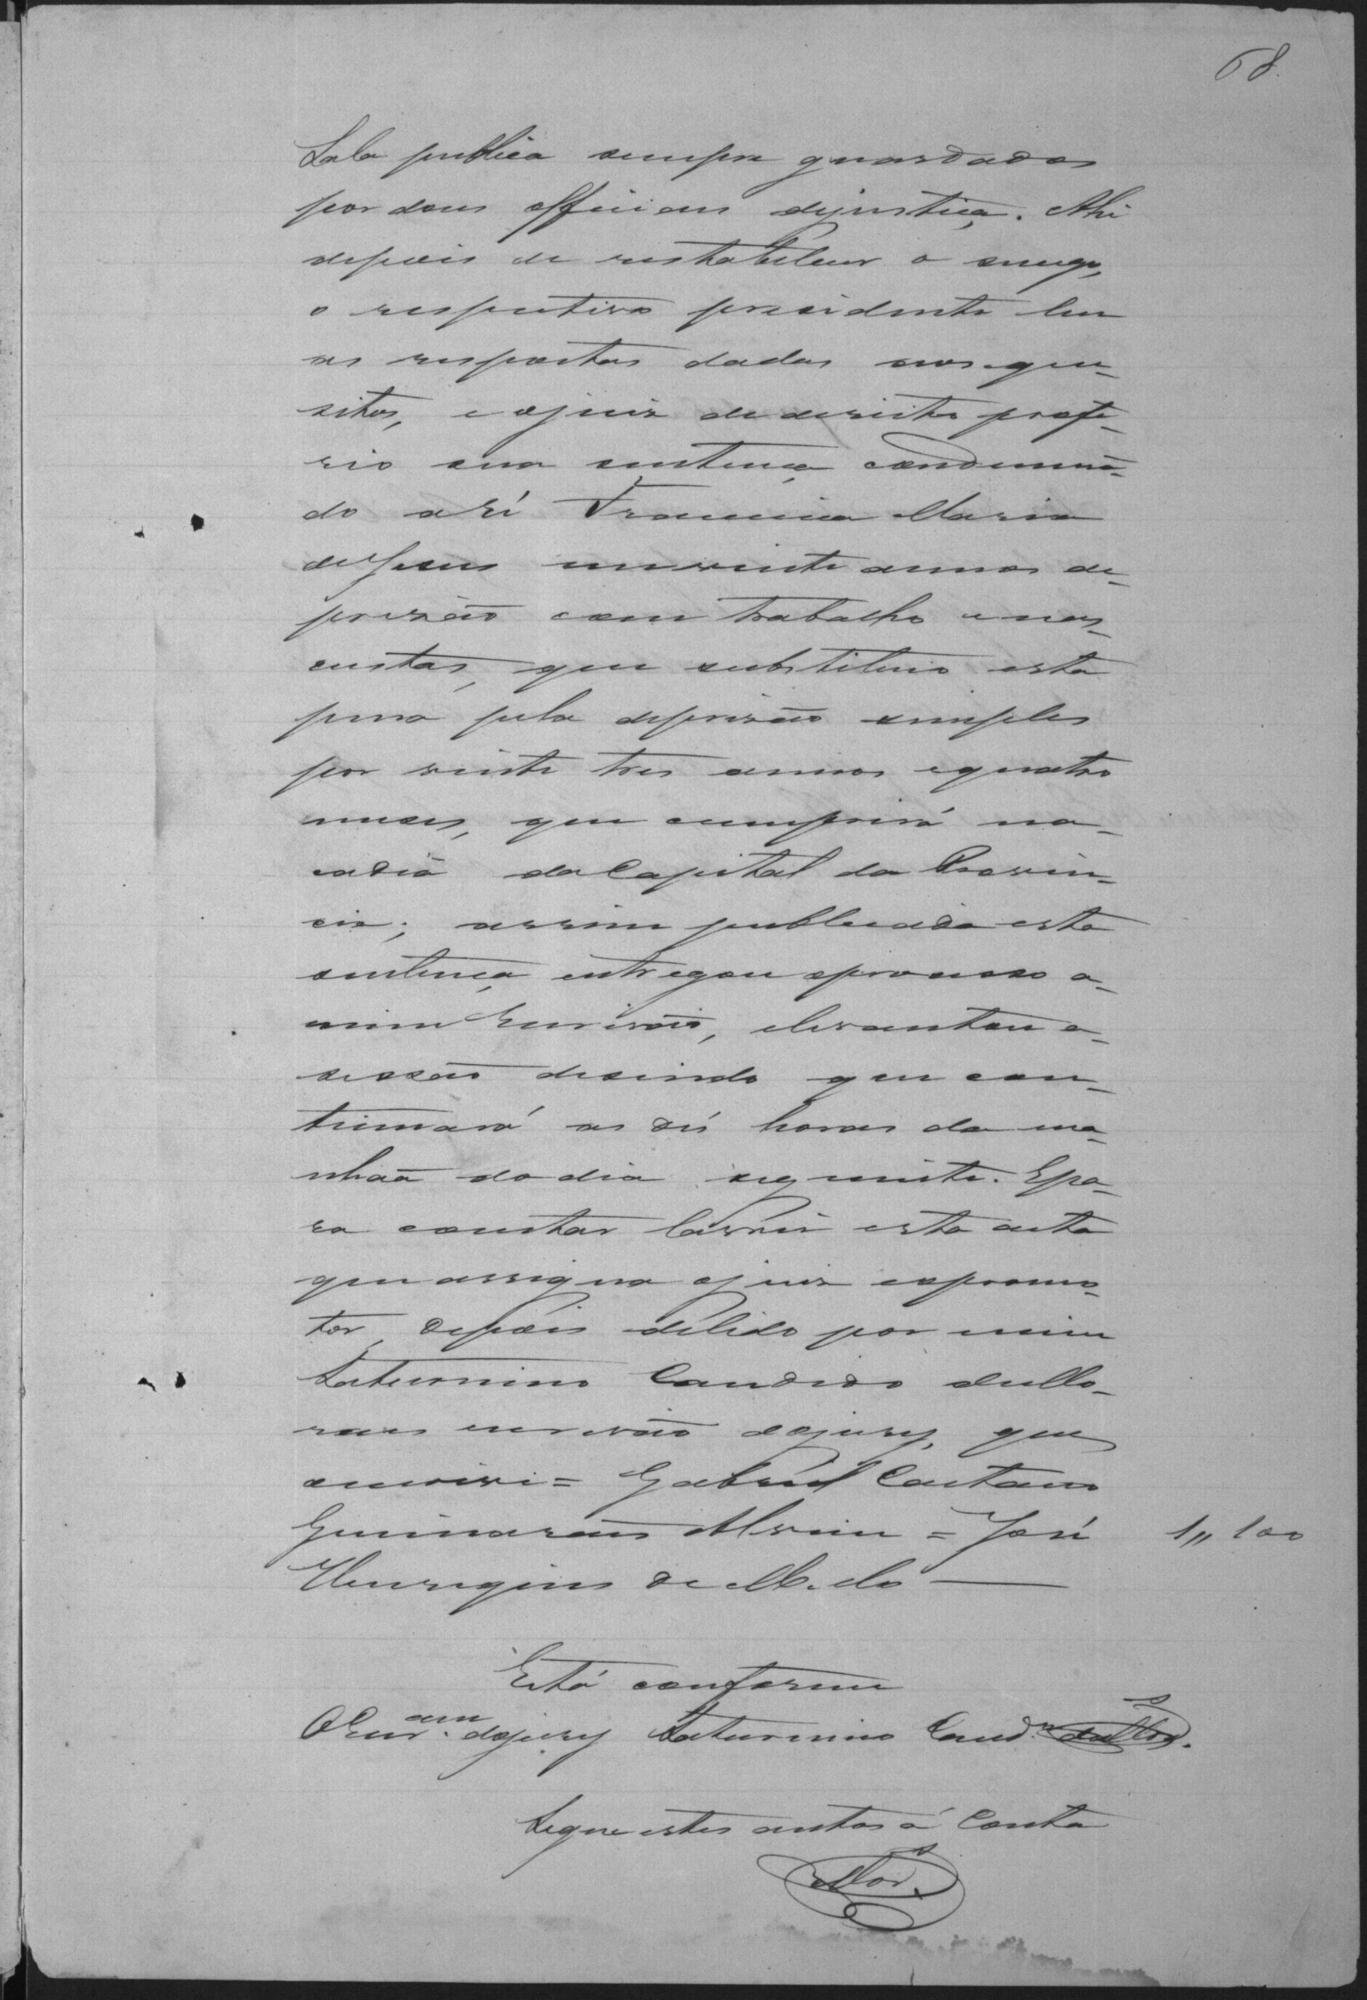 68.
Sala publica sempre guardados
por dous officiaes dejustiça. Ahi
depois de
o respectivo presidente leu
as respostas dadas aos que-
sitos, e ojuiz de direito profe-
rio sua sentença condemnã-
do a ré Francisca Maria
deJesus em vinte annos de-
prizão com trabalho e nas-
custas, que substituio esta
pena pela deprizão simples
por vinte tres annos equatro
mezes, que cumprirá na-
cadiá da Capital da Provin-
cia; assim publicada esta
sentença entregou oprocesso a-
mim Escrivão, elevantou a-
sessão dizindo que con-
tinuará as dés horas da ma-
nhaã do dia seguinte. Epa-
ra constar lavrei esta acta
que assigna ojuiz eopromo-
tor, depois delido por mim
Saturnino Candido deMo-
raes escrivão dojury, que
escrivi = Gabriel Caetano
Guimarães Alvim = José 1,, 100
Henriques de
Está conforme
OEscr.am dojury Saturnino Cand.º deMor.s
Segue estes autos á Conta
Mor.s